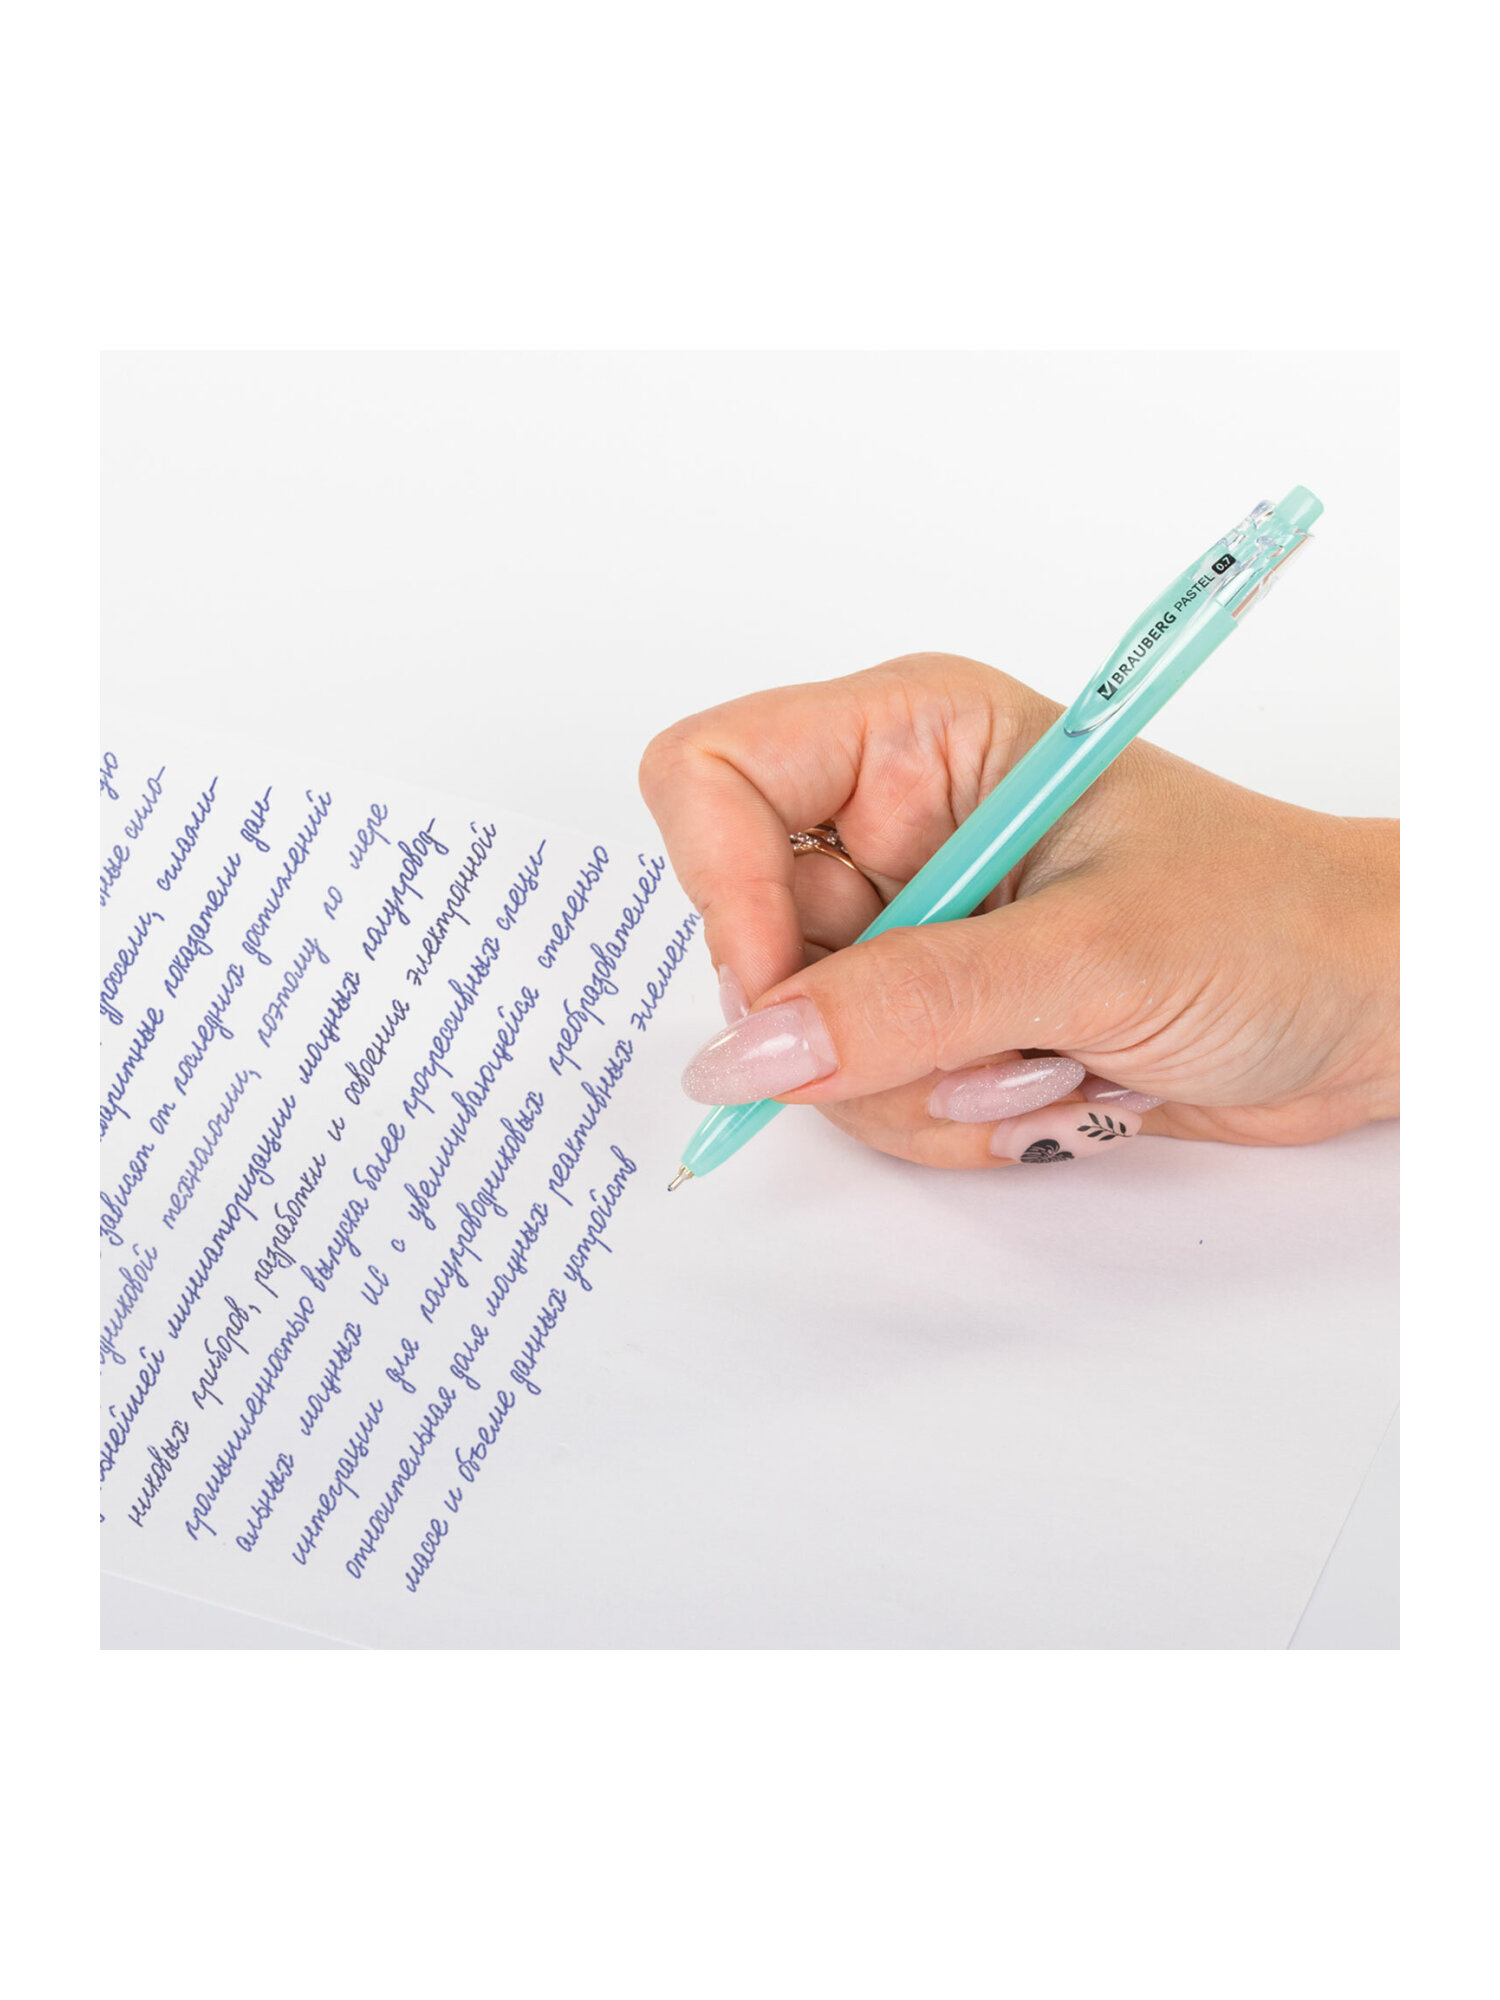 ную
ные сило-
дроссели, силами
габаритные показатели дан-
зависят от последних достижений
никовой технологии, поэтому по мере
нейшей миниатюризации мощных полупровод-
никовых приборов, разработки и освоения электронной
промышленностью выпуска более прогрессивных специ-
альных мощных ИС с увеличивающейся степенью
интеграции для полупроводниковых преобразователей
относительная доля мощных реактивных элемент
массе и объеме данных устройств
BRAUBERG PASTEL 0.7